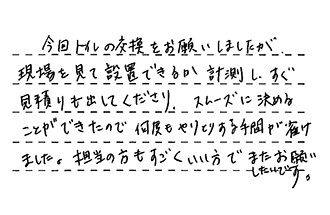 今回トイレの交換をお願いしましたが、
現場を見て設置できるか計測し、すぐ
見積りも出してくださり、スムーズに決める
ことができたので何度もやりとりする手間が省け
ました。担当の方もすごくいい方でまたお願い
したいです。